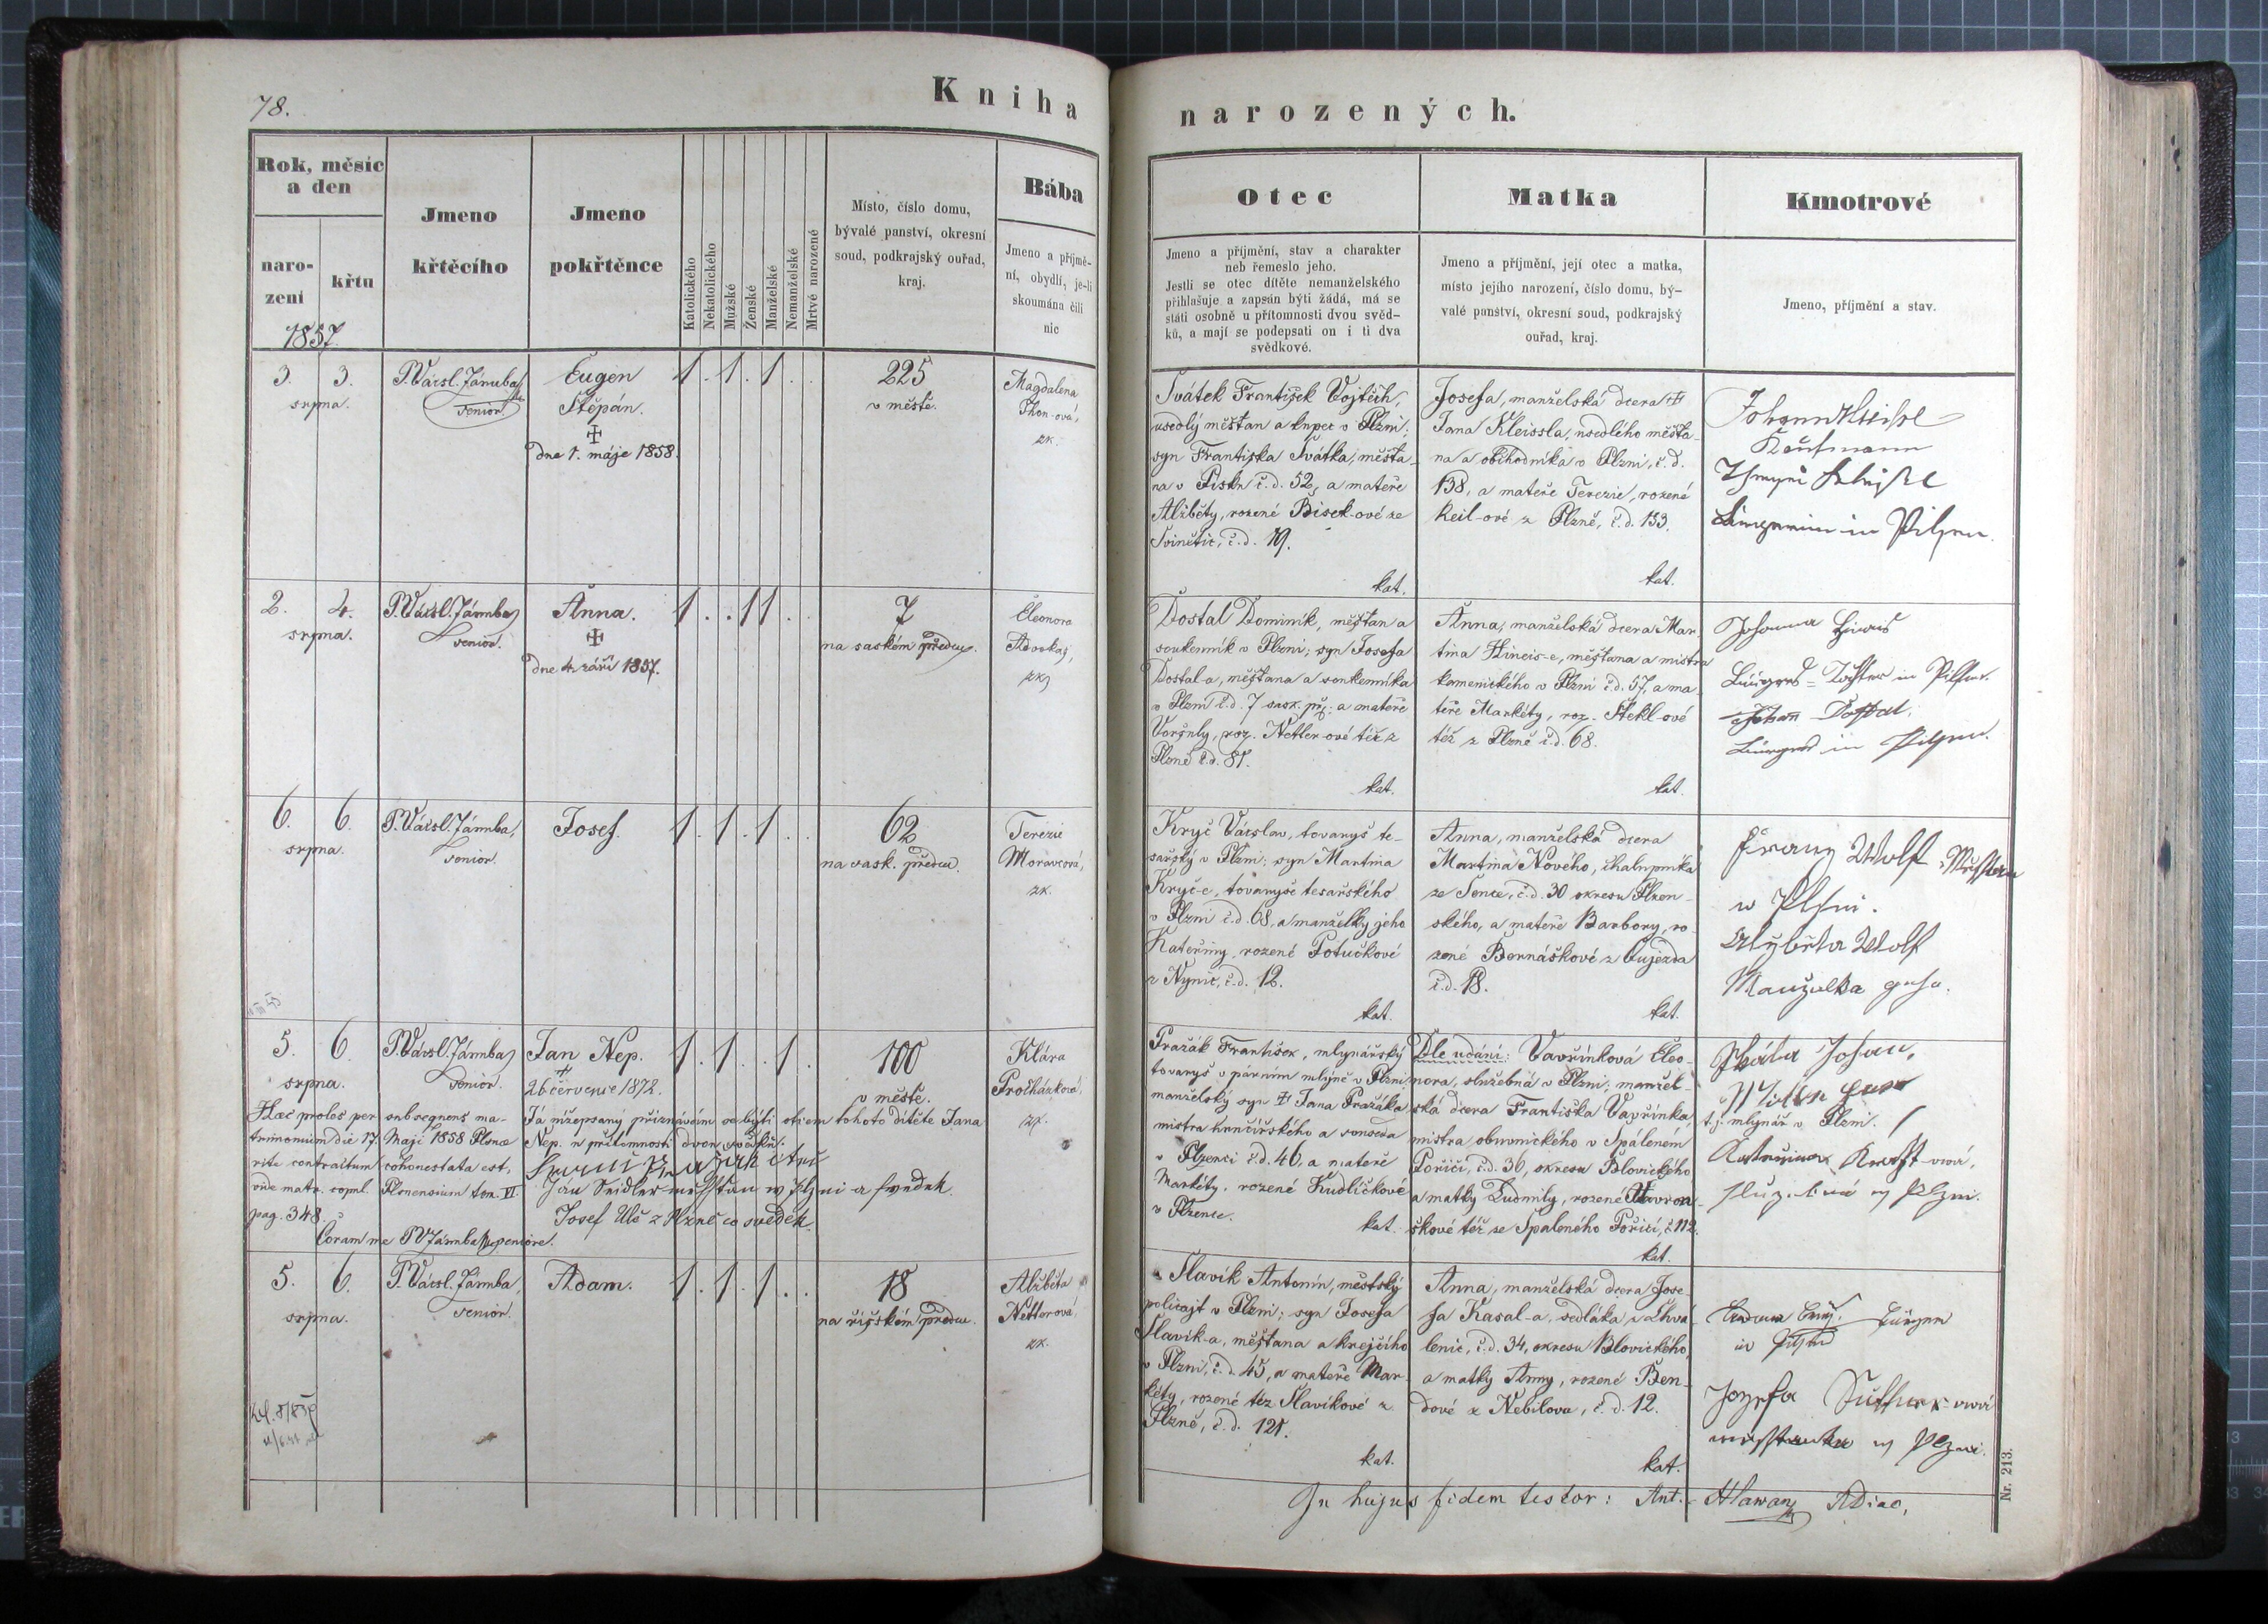 78.
Kniha
narozených.
Rok, měsíc
a den
naro-
zení
křtu
1857.
Jmeno
křtěcího
Jmeno
pokřtěnce
Katolického
Nekatolického
Mužské
Ženské
Manželské
Nemanželské
Mrtvé narozené
Místo, číslo domu,
bývalé panství, okresní
soud, podkrajský ouřad,
kraj.
Bába
Jmeno a příjmě-
ní, obydlí, je-li
skoumána čili
nic
Otec
Jmeno a příjmění, stav a charakter
neb řemeslo jeho.
Jestli se otec dítěte nemanželského
přihlašuje a zapsán býti žádá, má se
státi osobně u přítomnosti dvou svěd-
ků, a mají se podepsati on i ti dva
svědkové.
Matka
Jmeno a příjmění, její otec a matka,
místo jejího narození, číslo domu, bý-
valé panství, okresní soud, podkrajský
ouřad, kraj.
Kmotrové
Jmeno, příjmění a stav.
3. 3.
srpna.
P. Vácsl. Jármba
senior
Eugen
Štěpán.
dne 1. máje 1858.
1 . 1 . 1 . .
225
v městě.
Magdalena
Thon-ová,
zk.
Svátek František Vojtěch,
usedlý měšťan a kupec v Plzni;
syn Františka Svátka, měšťa-
na v Písku č.d. 52, a mateře
Alžběty, rozené Bisek-ové ze
Svinětic, č.d. 19.
kat.
Josefa, manželská dcera
Jana Kleissla, usedlého měšťa-
na a obchodníka v Plzni, č.d.
138, a mateře Terezie, rozené
Keil-ové z Plzně, č.d. 133.
kat.
Kaufmann
in Pilsen.
2. 4.
srpna.
P. Vácsl. Jármba
senior.
Anna.
dne 4. září 1857.
1 . . 1 1 . .
7
na saském předm.
Eleonora
zk.
Dostal Dominik, měšťan a
soukenník v Plzni; syn Josefa
Dostal-a, měšťana a soukenníka
v Plzni č.d. 7 sask. př.; a mateře
Voršily, roz. Netler-ové též z
Plzně č.d. 81.
kat.
Anna, manželská dcera Mar-
tina Hineis-e, měšťana a mistra
kamenického v Plzni č.d. 57, a ma-
teře Markéty, roz. Štekl-ové
též z Plzně č.d. 68.
kat.
Johanna Hineis
Bürgers-Tochter in Pilsen.
Johann Dostal,
Bürger in Pilsen.
6. 6.
srpna.
P. Vácsl. Jármba,
senior.
Josef.
1 . 1 . 1 . .
62
na sask. předm.
Terezie
Moravcová,
zk.
Kryč Vácslav, tovaryš te-
sařský v Plzni; syn Martina
Kryč-e, tovaryše tesařského
v Plzni č.d. 68, a manželky jeho
Kateřiny, rozené Potučkové
z Nynic, č.d. 12.
kat.
Anna, manželská dcera
Martina Nového, chalupníka
ze Sence, č.d. 30 okresu Plzen-
ského, a mateře Barbory, ro-
zené Bernáškové z Oujezda
č.d. 18.
kat.
Franz Wolf
w Plzni.
Alžběta Wolf
Manželka geho.
5. 6.
srpna.
P. Vácsl. Jármba
senior.
Jan Nep.
26 července 1872.
1 . 1 . . 1 .
100
v městě.
Klára
Procházková,
zk.
Haec proles per subsequens ma-
trimonium die 17. Maji 1858 Plsnae
rite contractum cohonestata est,
vide matr. copul. Plsnensium tom. VI.
pag. 348.
Coram me P. V. Jármba seniore.
Já nížepsaný přiznávám se býti otcem tohoto dítěte Jana
Nep. u přítomnosti dvou svědků:
Jan Seidler měšťan w Plzni a swedek.
Josef Ulč z Plzně co svědek.
Pražák František, mlynářský
tovaryš v párním mlýně v Plzni
manželský syn Jana Pražáka
mistra hrnčířského a souseda
v Plzenci č.d. 46, a mateře
Markéty, rozené Kudličkové
v Plzence.
kat.
Dle udání: Vavřínková Eleo-
nora, služebná v Plzni, manžel-
ská dcera Františka Vavřínka,
mistra obuvnického v Spáleném
Poříčí, č.d. 36, okresu Blovického
a matky Ludmily, rozené Havron-
škové též ze Spáleného Poříčí, č 112.
kat.
Skála Johan,
t.j. mlynář v Plzni.
5. 6.
srpna.
P. Vácsl. Jármba,
senior.
Adam.
1 . 1 . 1 . .
18
na říšském předm.
Alžběta
Netlerová
zk.
Slavík Antonín, městský
policajt v Plzni; syn Josefa
Slavík-a, měšťana a krejčího
v Plzni, č.d. 45, a mateře Mar-
kéty, rozené též Slavíkové z
Plzně, č.d. 121.
kat.
Anna, manželská dcera Jose-
fa Kasal-a, sedláka z Chvá-
lenic, č.d. 34, okresu Blovického,
a matky Anny, rozené Ben-
dové z Nebílova, č.d. 12.
kat.
Jozefa
In hujus fidem testor: Ant. Hlawan
Nr. 213.